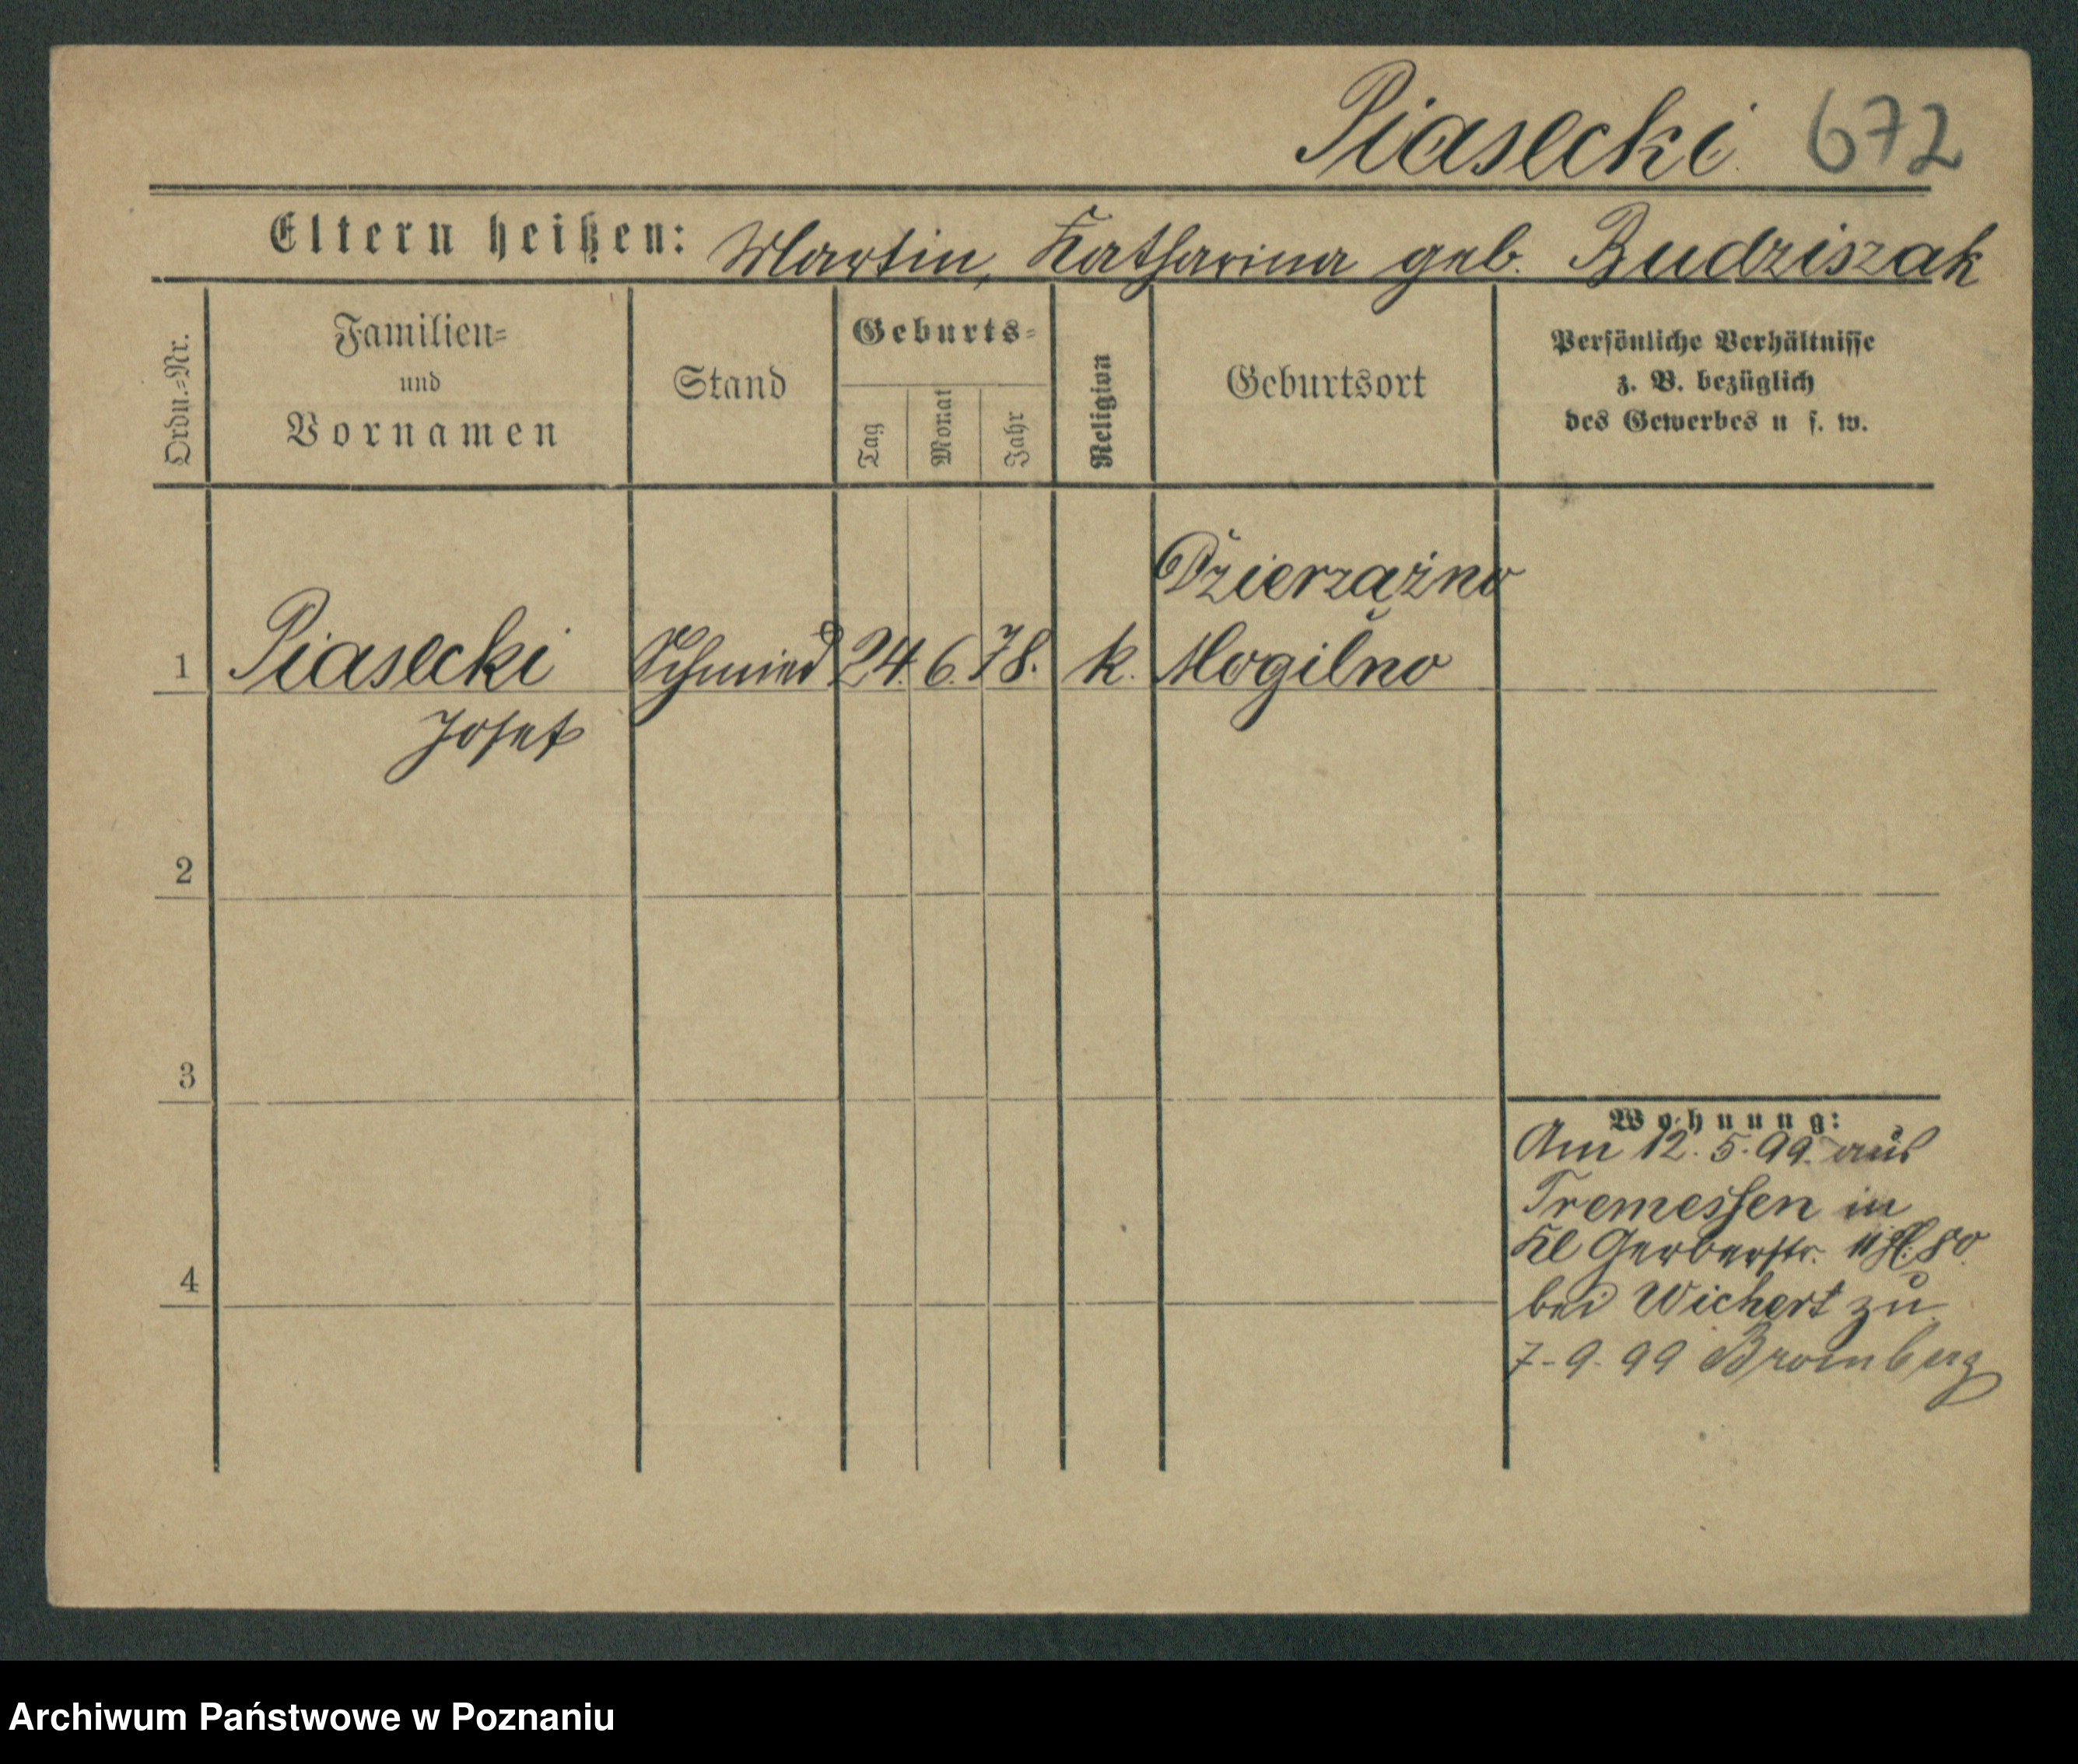 Piasecki 672
Eltern heißen: Martin, Katharina geb. Budziszak
Ordn.-Nr.
Familien-
und
Vornamen
Stand
Geburts-
Tag
Monat
Jahr
Religion
Geburtsort
Persönliche Verhältnisse
z. B. bezüglich
des Gewerbes u s. w.
Dzierzążno
1 Piasecki Schmied 24. 6. 78. k. Mogilno
Josef
2
3
Wohnung:
Am 12. 5. 99. aus
Tremessen in
Kl Gerberstr.
4
bei Wichert zu
7-9-99 Bromberg
Archiwum Państwowe w Poznaniu